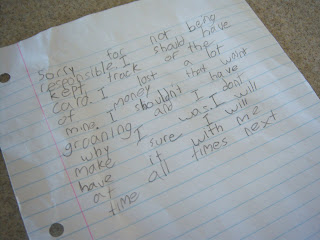 Sorry for not being
responsible, I should have
kept track of the
card. I lost a lot
of money that wasnt
mine. I shouldn't have
groaning and I dont
why I was. I will
make sure I will
have it with me
at all times next
time